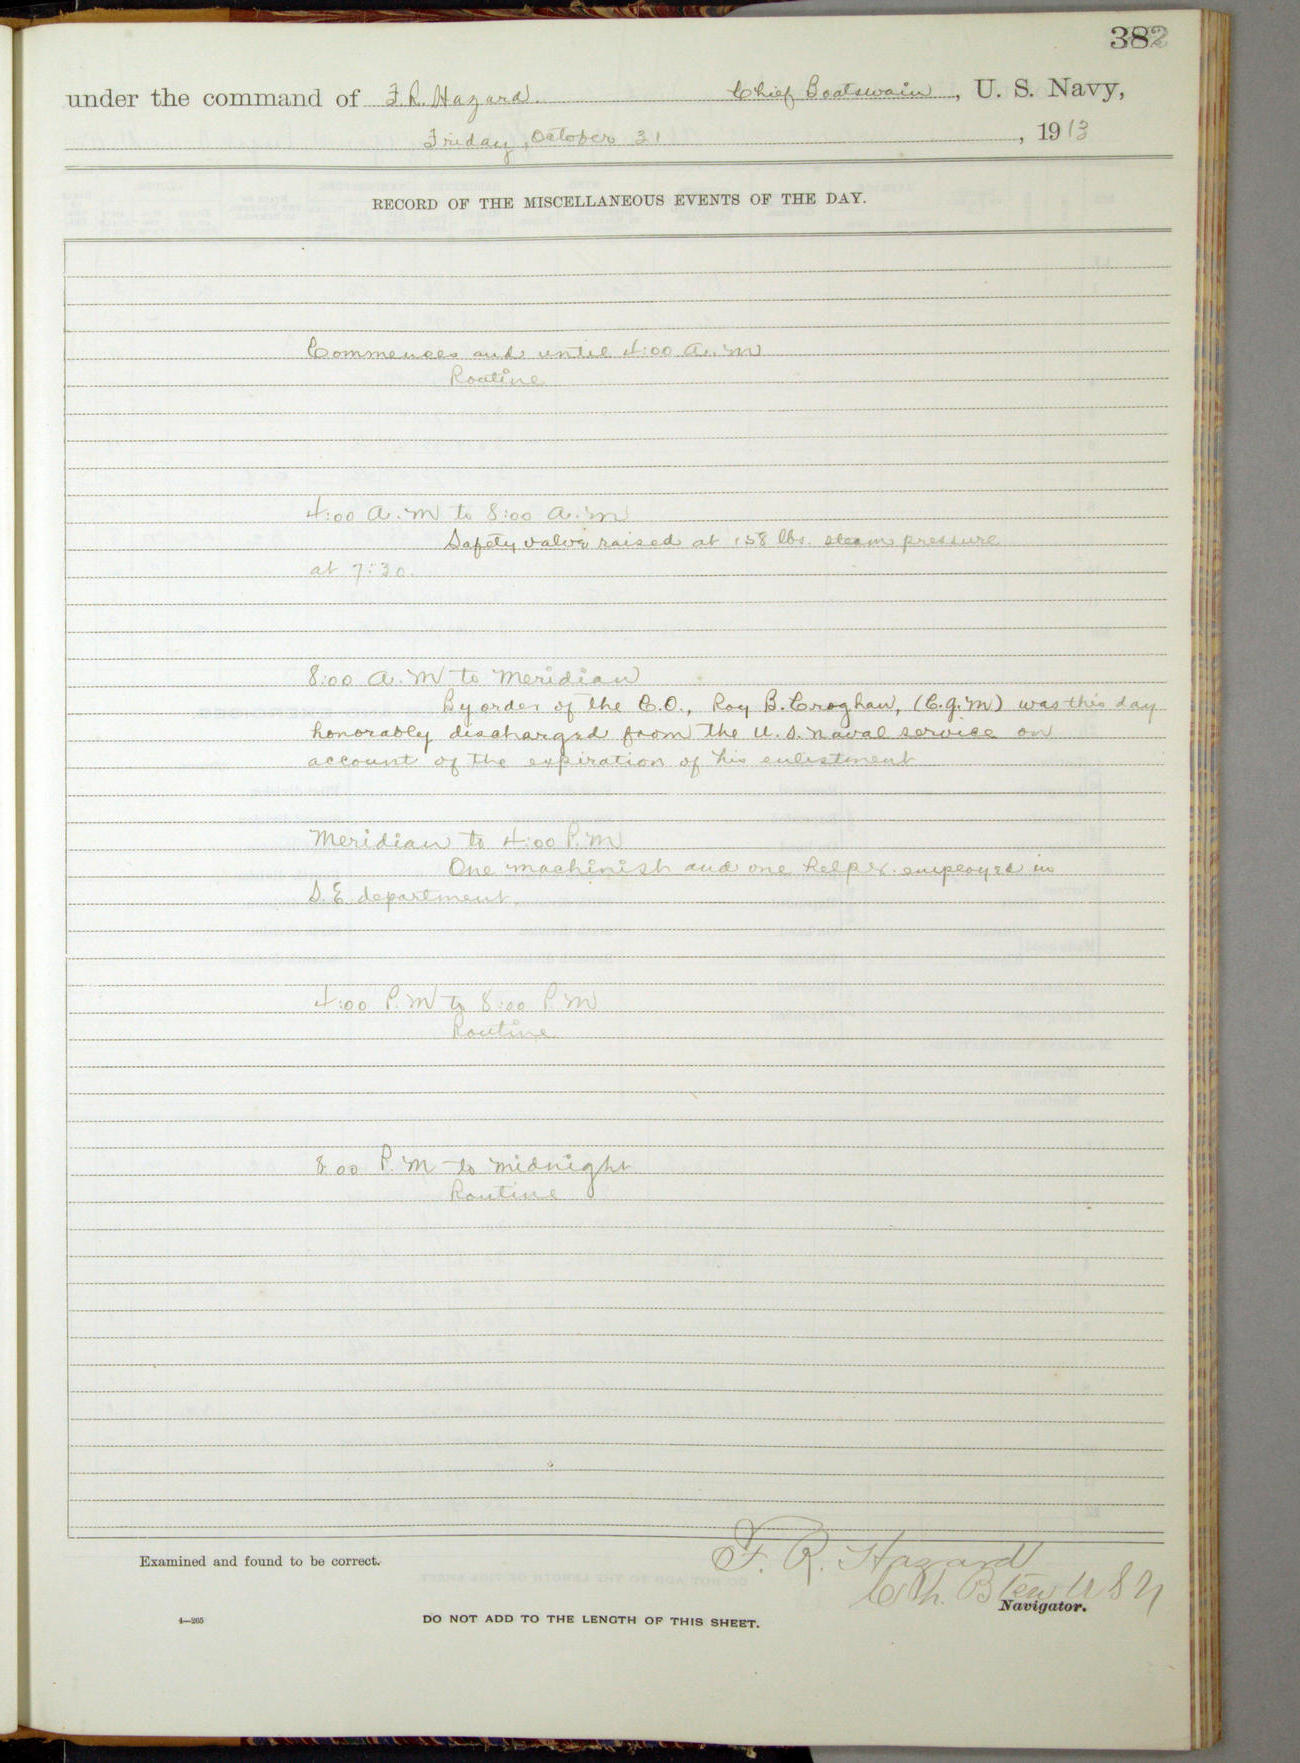 382
under the command of F. R. Hazard. Chief Boatswain, U. S. Navy,
Friday, October 31, 1913
RECORD OF THE MISCELLANEOUS EVENTS OF THE DAY.
Commences and until 4:00 A.M
Routine
4:00 A.M to 8:00 A.M
Safety valve raised at 158 lbs. steam pressure
at 7:30.
8:00 A.M to Meridian
By order of the C.O., Roy B. Croghan, (C.G.M) was this day
honorably discharged from the U.S. Naval service on
account of the expiration of his enlistment
Meridian to 4:00 P.M
One machinist and one helper employed in
S.E. department.
4:00 P.M to 8:00 P.M
Routine
8:00 P.M to midnight
Routine
Examined and found to be correct.
F. R. Hazard
Ch. Btsn U S N
Navigator.
4—265
DO NOT ADD TO THE LENGTH OF THIS SHEET.